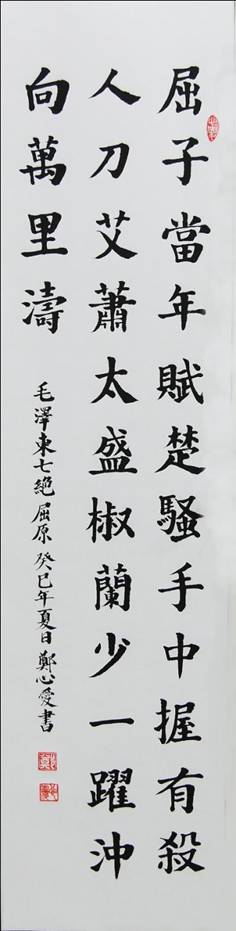 屈子當年賦楚騷手中握有殺
人刀艾蕭太盛椒蘭少一躍沖
向萬里濤
毛澤東七絕屈原癸巳年夏日鄭心愛書